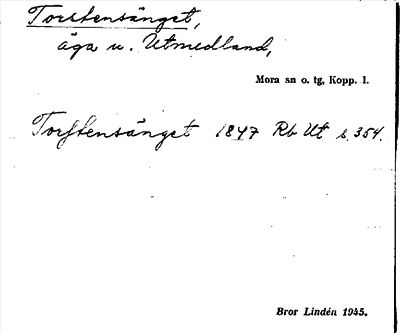 Torstensänget,
äga u. Utmedland,
Mora sn o. tg, Kopp. l.
Torstensänget 1847 Rb Ut s. 354.
Bror Lindén 1945.